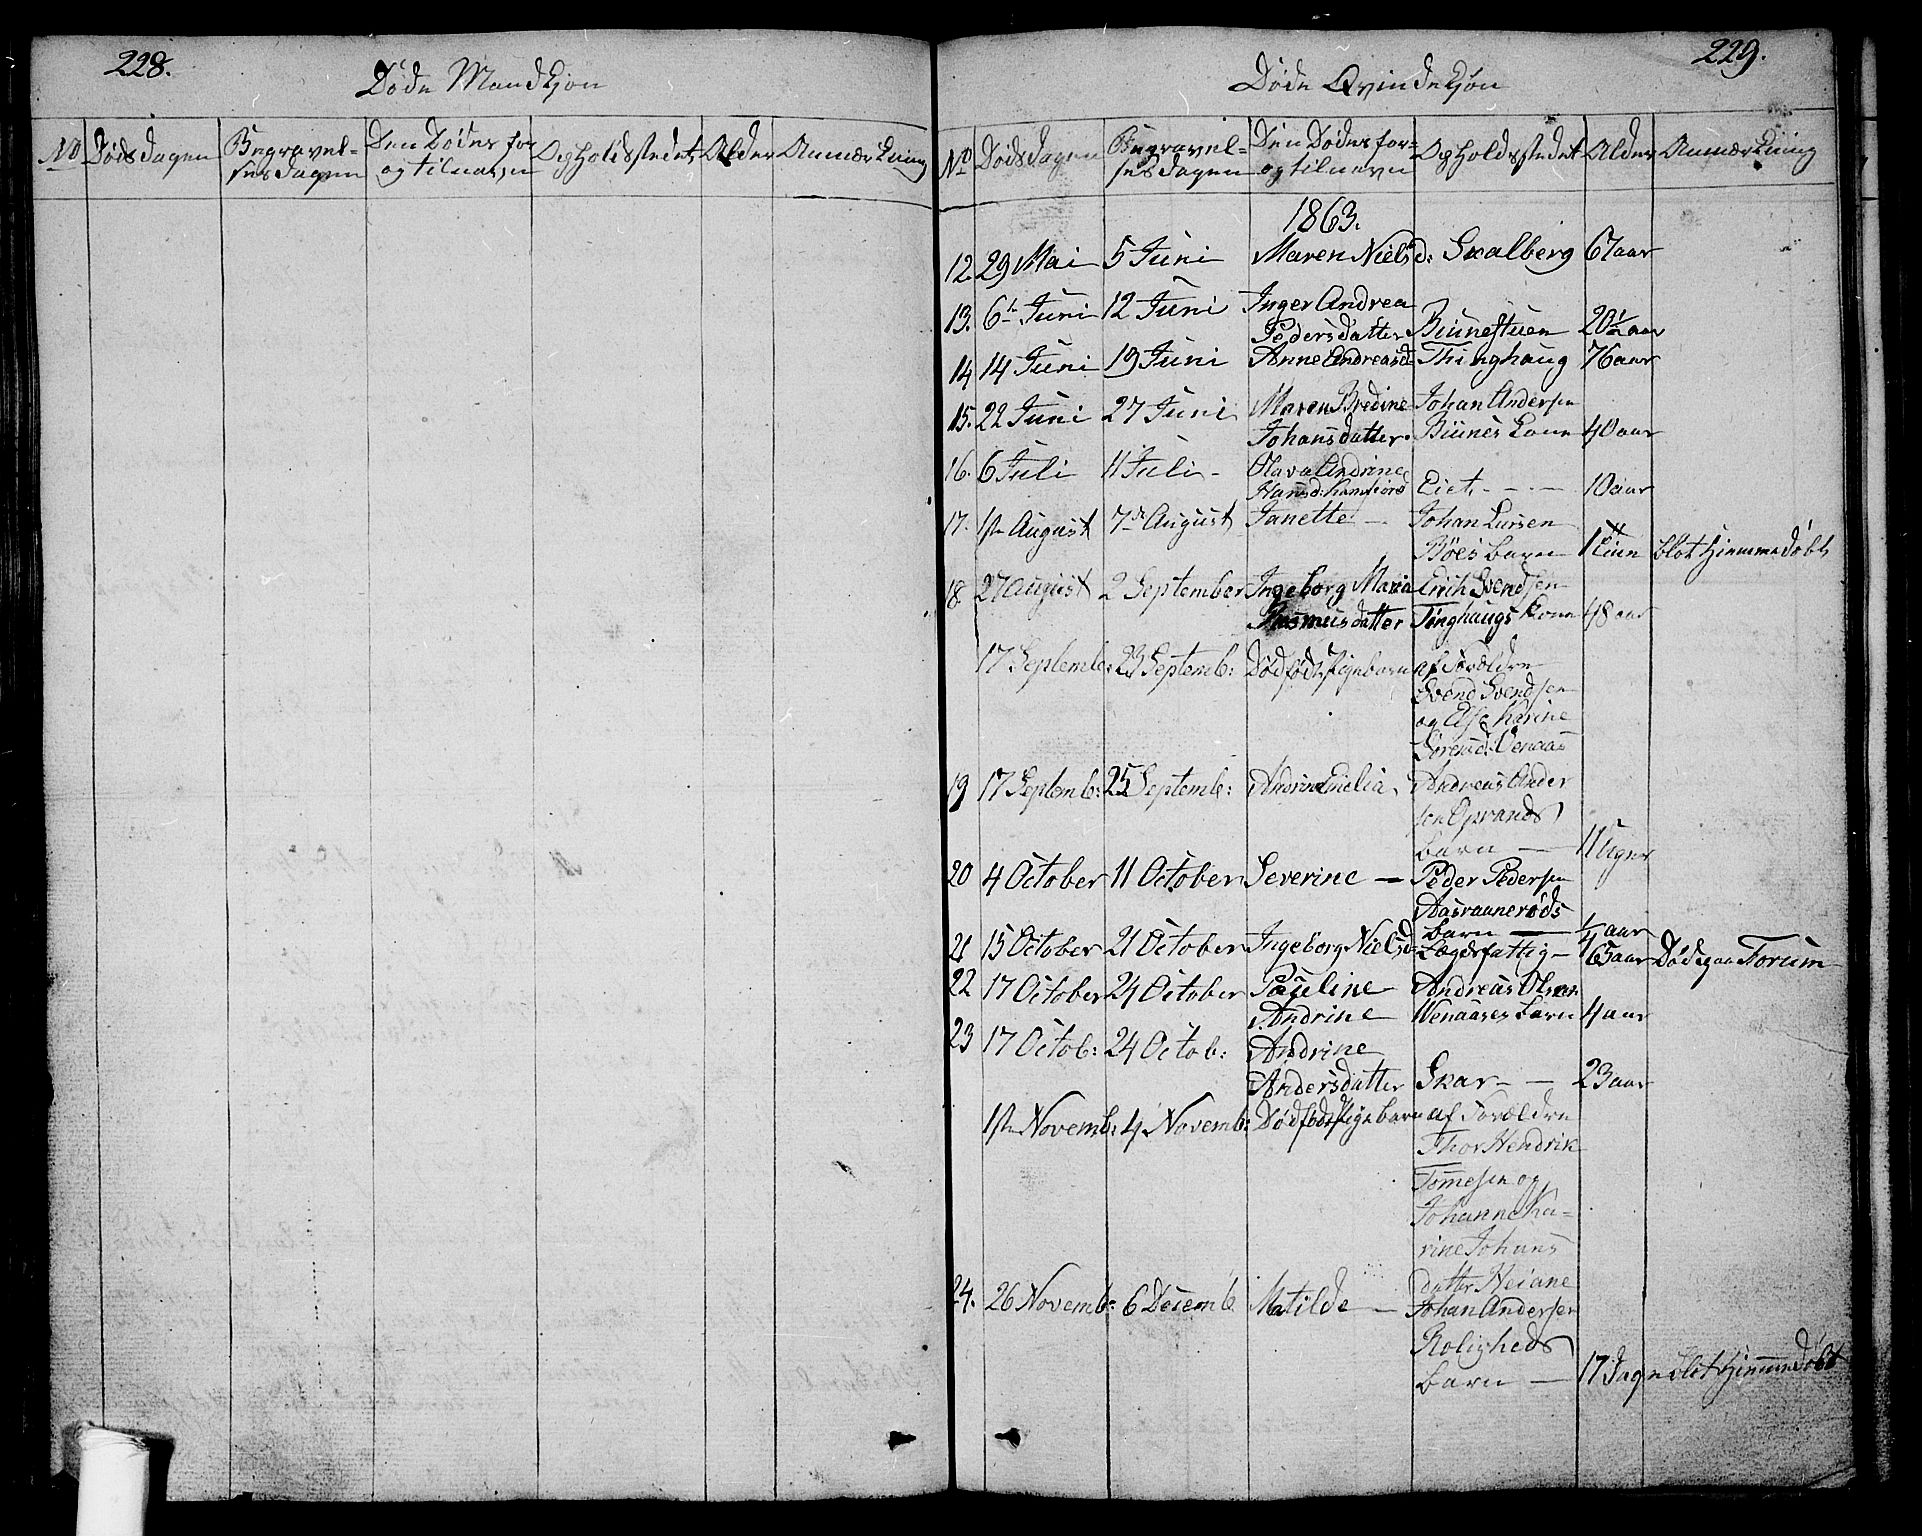 228.
Døde Mandkjøn
No Dødsdagen Begravel- Den Dødes for Opholdsstedet Alder Anmærkning
sesdagen og tilnavn
229.
Døde Qvindekjøn
No Dødsdagen Begravel= Den Dødes for= Opholdsstedet Alder Anmærkning
sesdagen og tilnavn
1863.
12. 29 Mai 5 Juni Maren Nielsd: Skalberg 67 aar
13. 6te Juni 12 Juni Inger Andrea
Pedersdatter Biinestuen 20½ aar
14 14 Juni 19 Juni Anne Andreasd Thinghaug 76 aar
15. 22 Juni 27 Juni Maren Bredine Johan Andersen
Johansdatter. Biines Kone 40 aar
16. 6 Juli 11 Juli - Olava Andrine
Hansd: Eiet - - - 10 aar
17. 1ste August 7de August Janette - Johan Larsen
Bøes barn 1 blot hjemmedøbt
18 27 August 2 September Ingeborg Maria Erich Svendsen
Rasmusdatter Tinghaugs Kone 48 aar
17 Septemb: 23 Septemb: Dødfødt Pigebarn af Forældre
Svend Svendsen
og Else Karine
Sørensd: Venaas
19 17 Septemb: 25 Septemb: Andrine Emelia, Andreas Ander
sen Opsands
barn — 11 Uger
20 4 October 11 October Severine — Peder Pedersen
Aasvaanerøds
barn — ¼ aar
21 15 October 21 October Ingeborg Nielsd= Lægdsfattig - 65 aar Død paa Forum
22 17 October 24 October Pauline Andreas Olsen
Andrine Wenaases barn 4 aar
23 17 Octob: 24 Octob: Andrine
Andersdatter Skar - - 23 aar
1ste Novemb: 4 Novemb: Dødfødt Pigebarn af Forældre
Thor Hendrik
Tomesen og
Johanne Ka-
rine Johans
datter Heiane
24. 26 Novemb: 6 Decemb Matilde - Johan Andersen
Roligheds
barn — 17 Dage blot hjemmedøbt